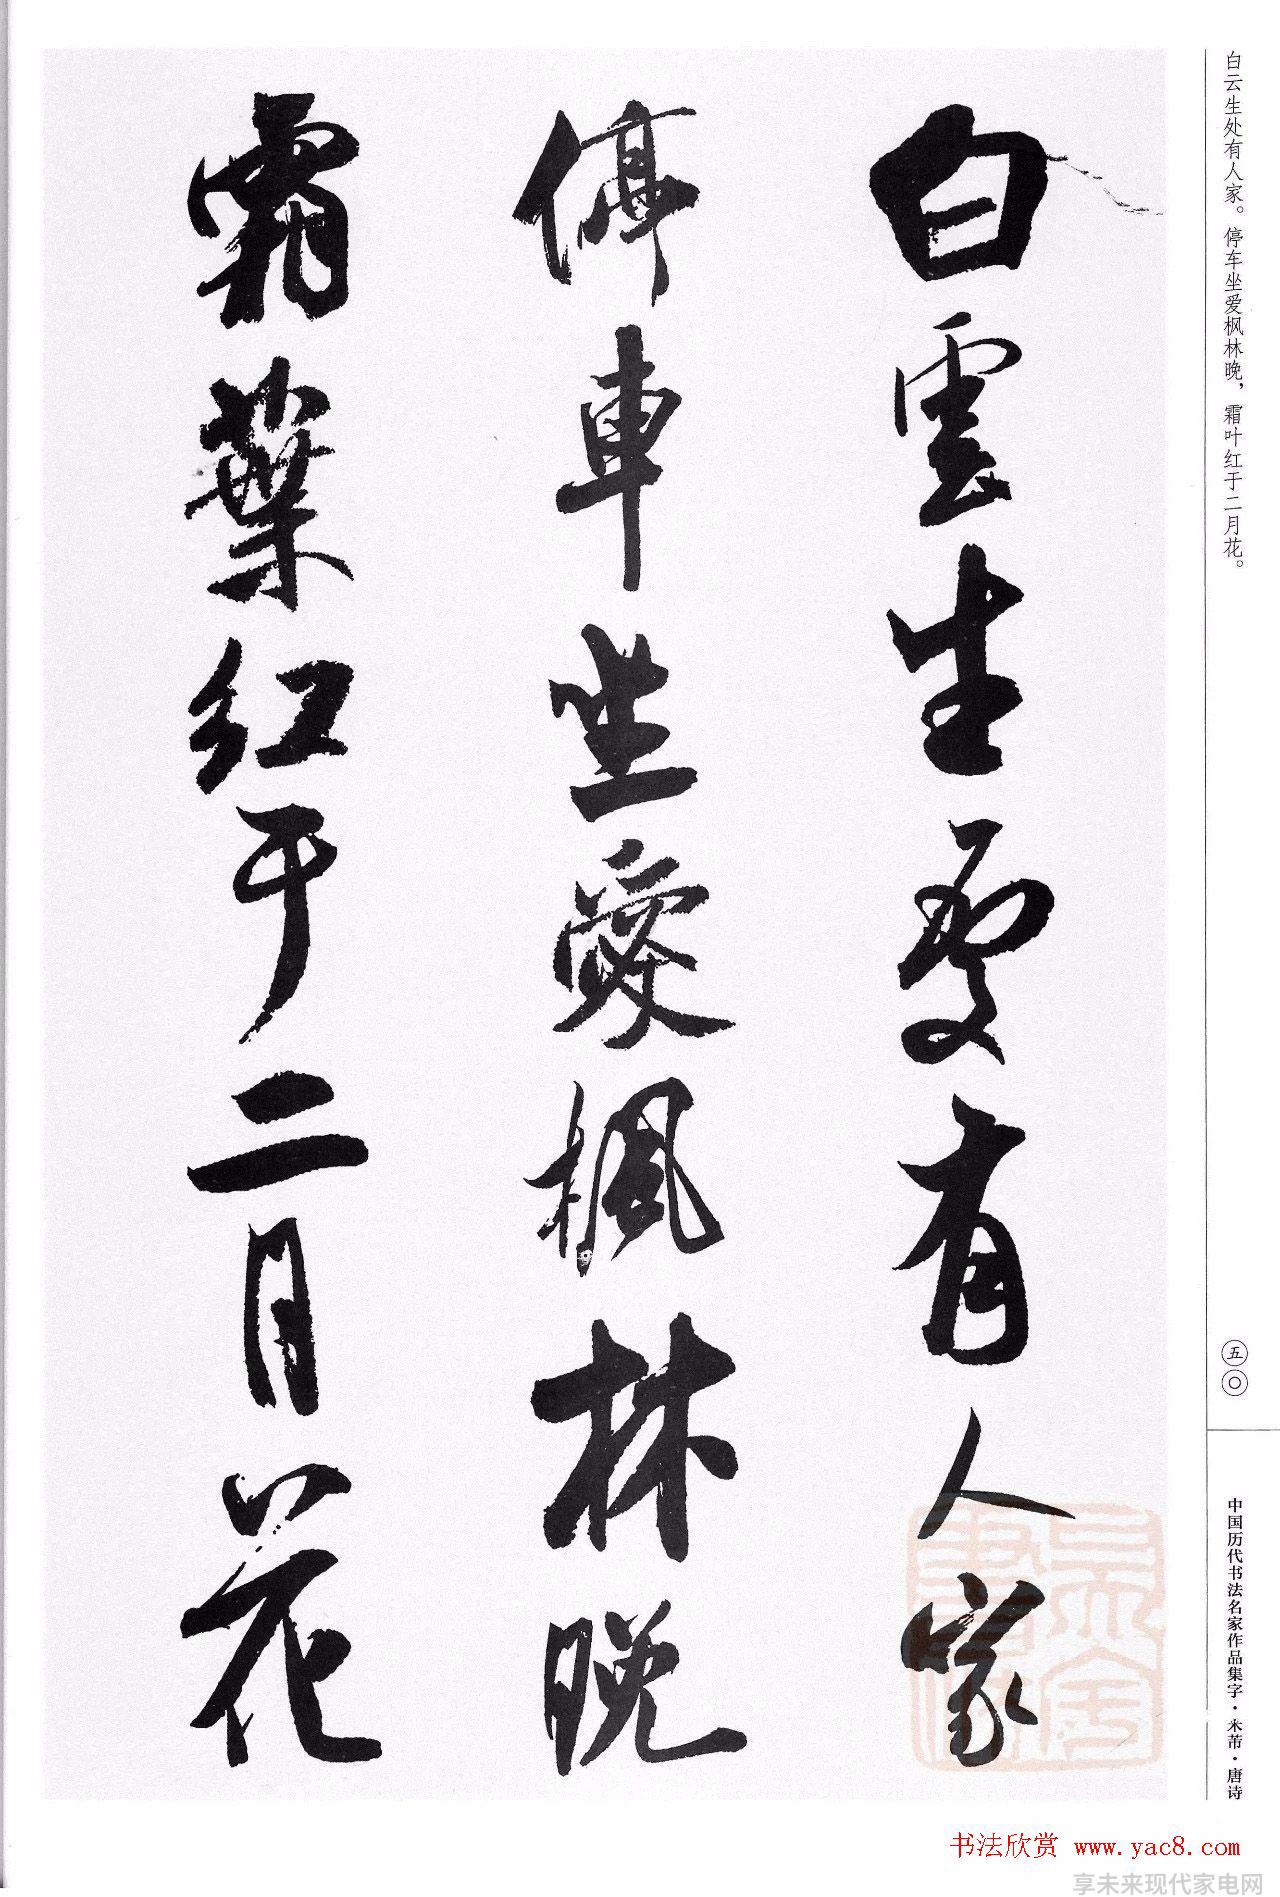 白雲生處有人家
停車坐愛楓林晚
霜葉红于二月花
白云生处有人家。停车坐爱枫林晚，霜叶红于二月花。
五〇
中国历代书法名家作品集字·米芾·唐诗
书法欣赏 www.yac8.com
享未来现代家电网